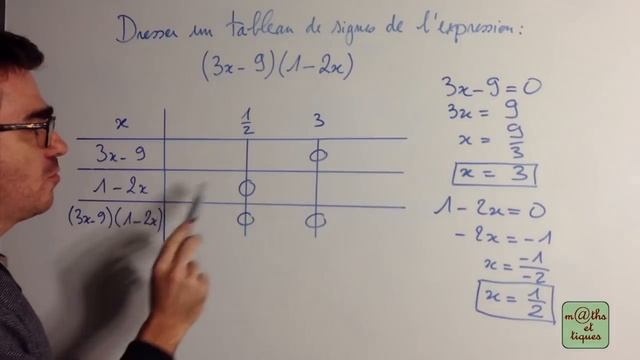 Dresser un tableau de signes de l'expression:
(3x-9)(1-2x)
x 1/2 3
3x-9 0
1-2x 0
(3x-9)(1-2x) 0 0
3x-9=0
3x= 9
x = 9/3
x = 3
1-2x=0
-2x=-1
x=-1/-2
x=1/2
m@ths
et
tiques